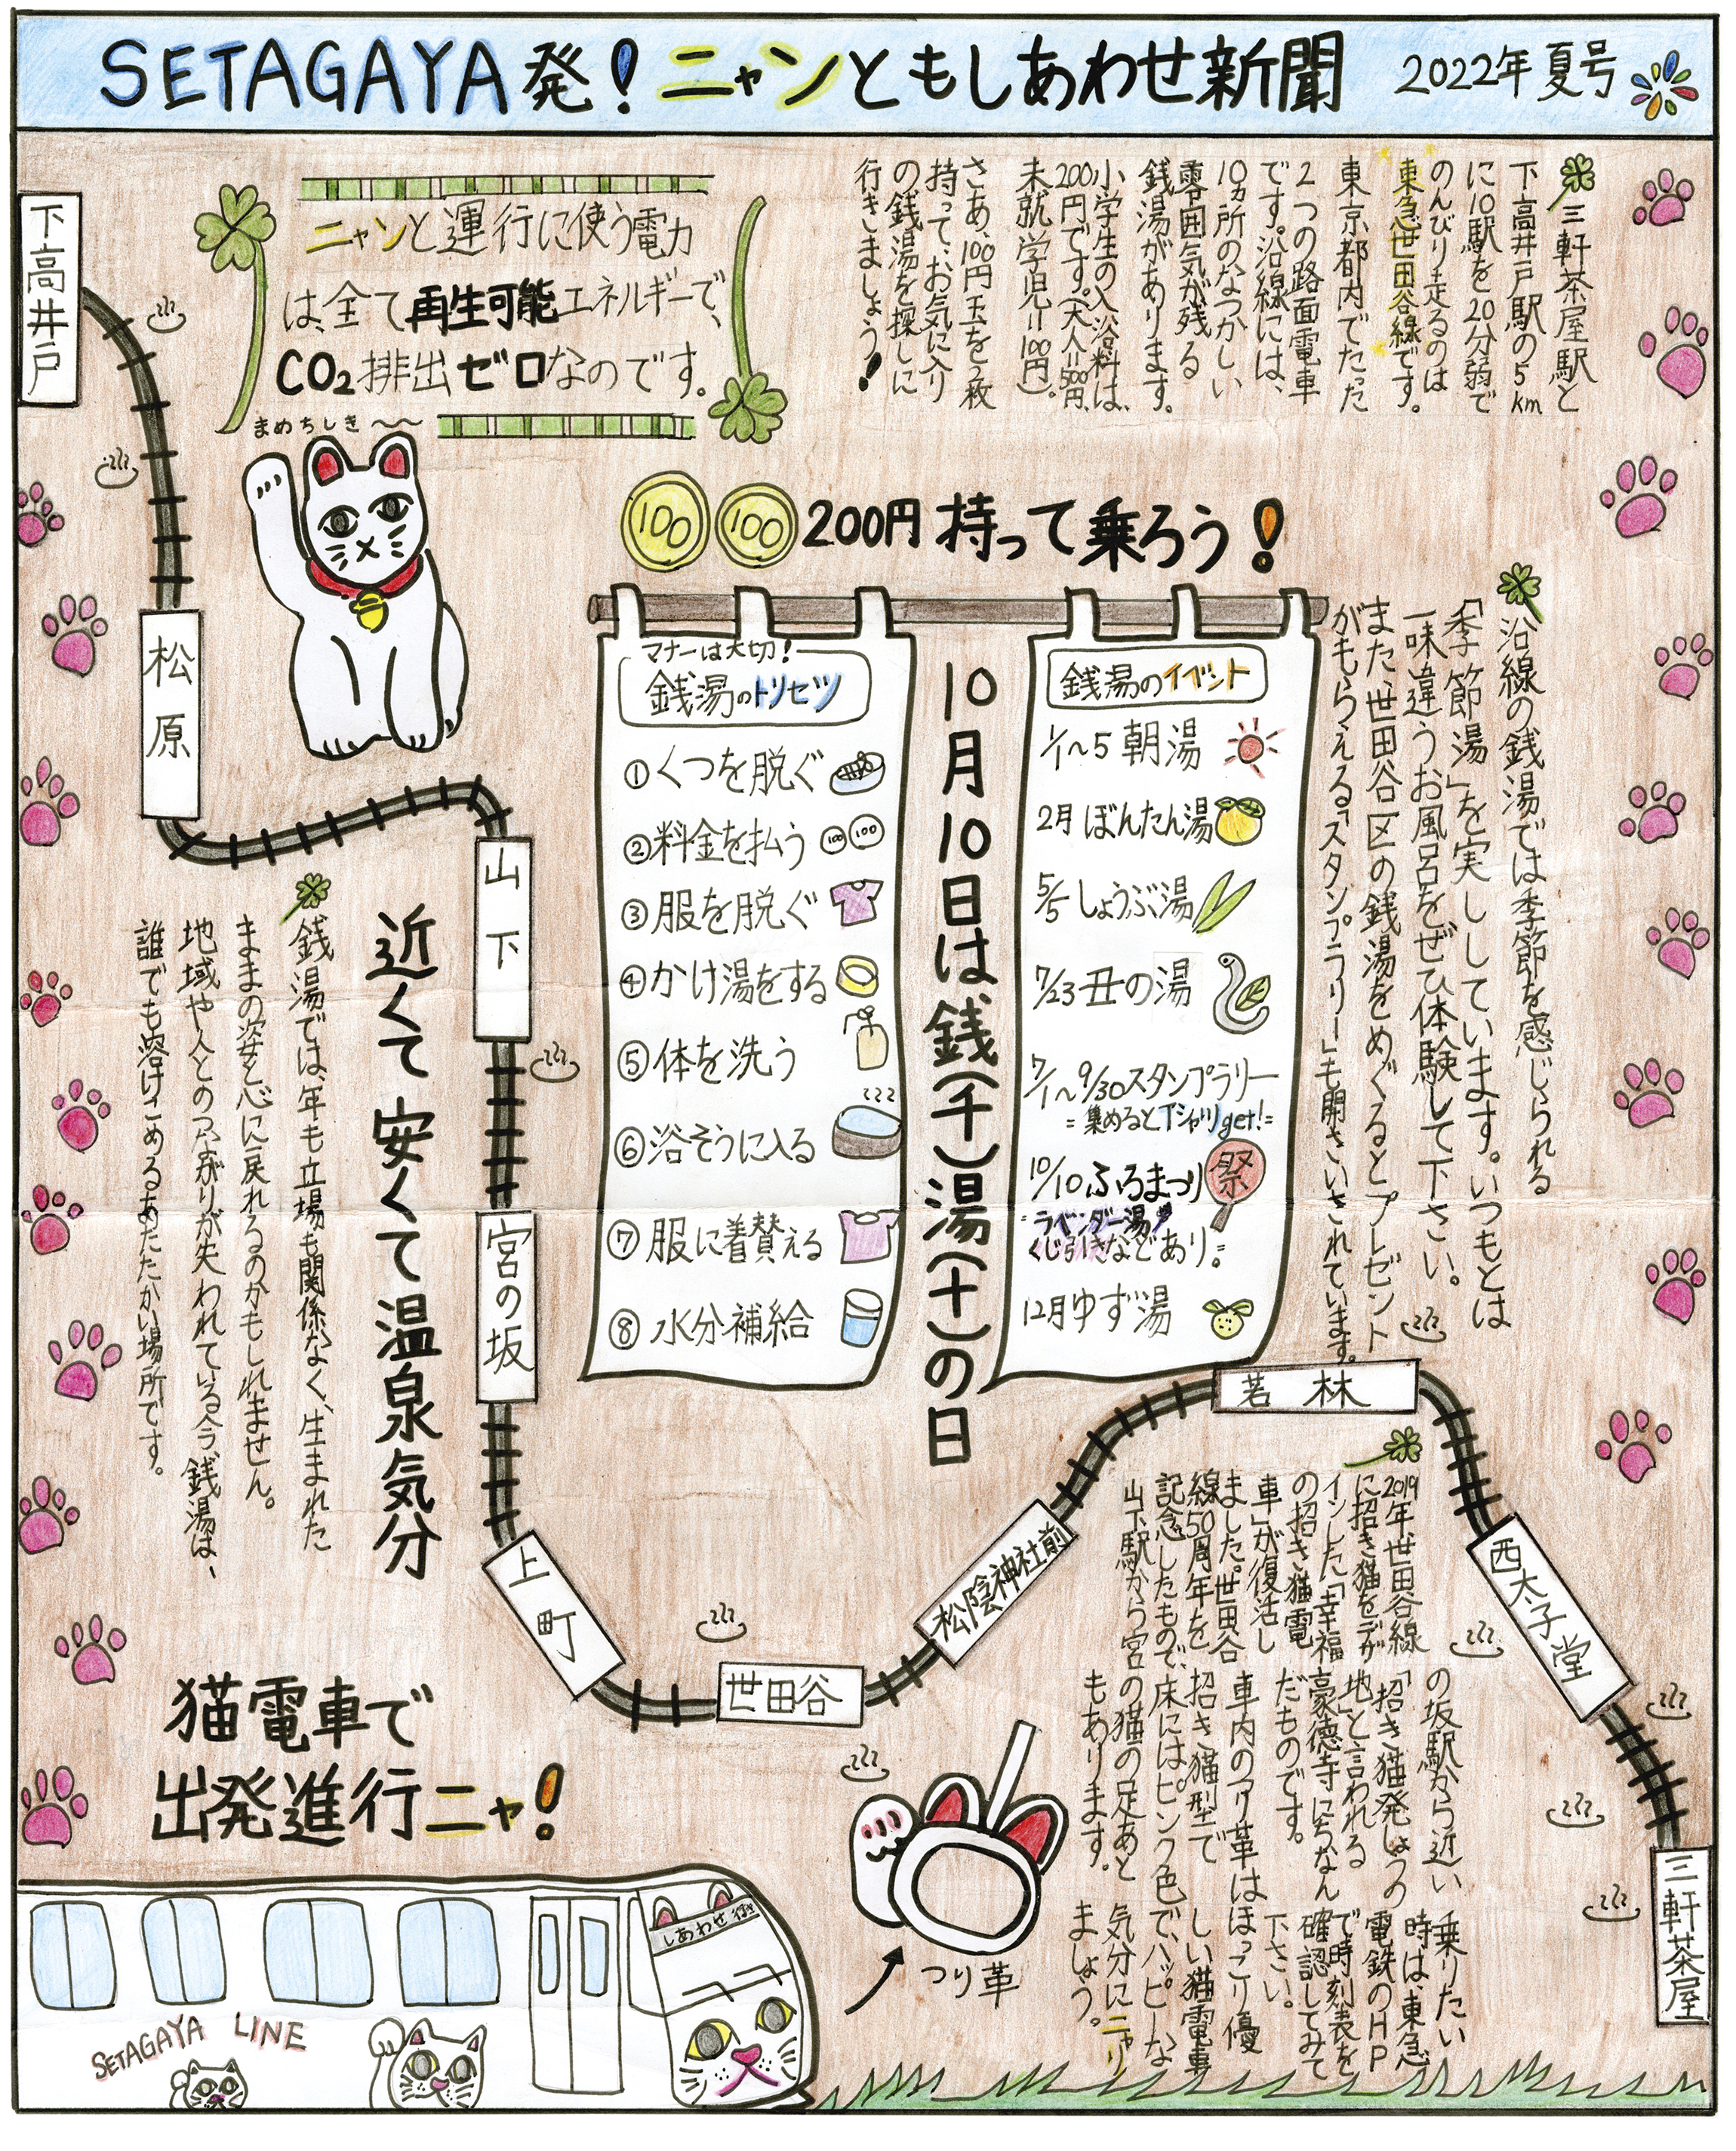 SETAGAYA発！ニャンともしあわせ新聞
2022年夏号
三軒茶屋駅と
下高井戸駅の5km
に10駅を20分弱で
のんびり走るのは
東急世田谷線です。
東京都内でたった
2つの路面電車
です。沿線には、
10カ所のなつかしい
雰囲気が残る
銭湯があります。
小学生の入浴料は、
200円です。(大人=500円、
未就学児=100円)。
さあ、100円玉を2枚
持って、お気に入り
の銭湯を探しに
行きましょう！
ニャンと運行に使う電力
は、全て再生可能エネルギーで、
CO2排出ゼロなのです。
まめちしき〜〜
100 100 200円持って乗ろう！
沿線の銭湯では季節を感じられる
「季節湯」を実しています。いつもとは
一味違うお風呂をぜひ体験して下さい。
また、世田谷区の銭湯をめぐるとプレゼント
がもらえる「スタンプラリー」も開さいされています。
銭湯のイベント
1/1〜5 朝湯
2月 ぼんたん湯
5/5 しょうぶ湯
7/23 丑の湯
7/1〜9/30スタンプラリー
=集めるとTシャツget!=
10/10 ふろまつり
祭
=ラベンダー湯
くじ引きなどあり。=
12月ゆず湯
10月10日は銭(千)湯(十)の日
マナーは大切！
銭湯のトリセツ
①くつを脱ぐ
②料金を払う
100 100
③服を脱ぐ
④かけ湯をする
⑤体を洗う
⑥浴そうに入る
⑦服に着替える
⑧水分補給
近くて安くて温泉気分
銭湯では、年も立場も関係なく、生まれた
ままの姿と心に戻れるのかもしれません。
地域や人とのつながりが失われている今、銭湯は、
誰でも溶けこめるあたたかい場所です。
下高井戸
松原
山下
宮の坂
上町
世田谷
松陰神社前
若林
西太子堂
三軒茶屋
2019年世田谷線
に招き猫をデザ
インした「幸福
の招き猫電
車」が復活し
ました。世田谷
線50周年を
記念したもので、
山下駅から宮
の坂駅から近い
「招き猫発しょうの
地」と言われる
豪徳寺にちなん
だものです。
車内のつり革は
招き猫型で
床にはピンク色
の猫の足あと
もあります。
乗りたい
時は、東急
電鉄のHP
で時刻表を
確認してみて
下さい。
ほっこり優
しい猫電車
で、ハッピーな
気分にニャり
ましょう。
つり革
猫電車で
出発進行ニャ！
しあわせ行き
SETAGAYA LINE